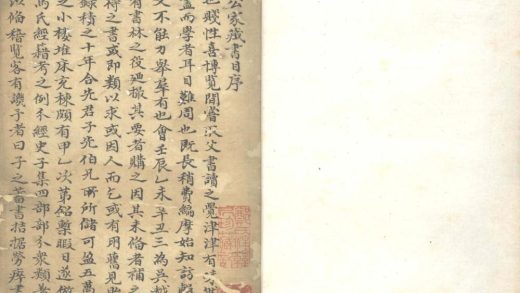 公家藏書目序
也賤性喜博覽閒嘗取父書讀之覺津津有味
盡而學者耳目難周也既長稍費編摩始知訪輯
又不能力舉羣有也會壬辰乙未辛丑三為吳越
有書林之役迺撮其要者購之因其未俻者補之
得之書或即類以求或因人而乞或有朋舊見
録積之十年合先君子先伯兄所儲可盈五萬
之小樓堆床充棟頗有甲乙次第鉛槧暇日遂倣
馬氏經籍考之例分經史子集四部部分衆類
以俻稽覽客有譏予者曰子之蓄書拮据勞瘁